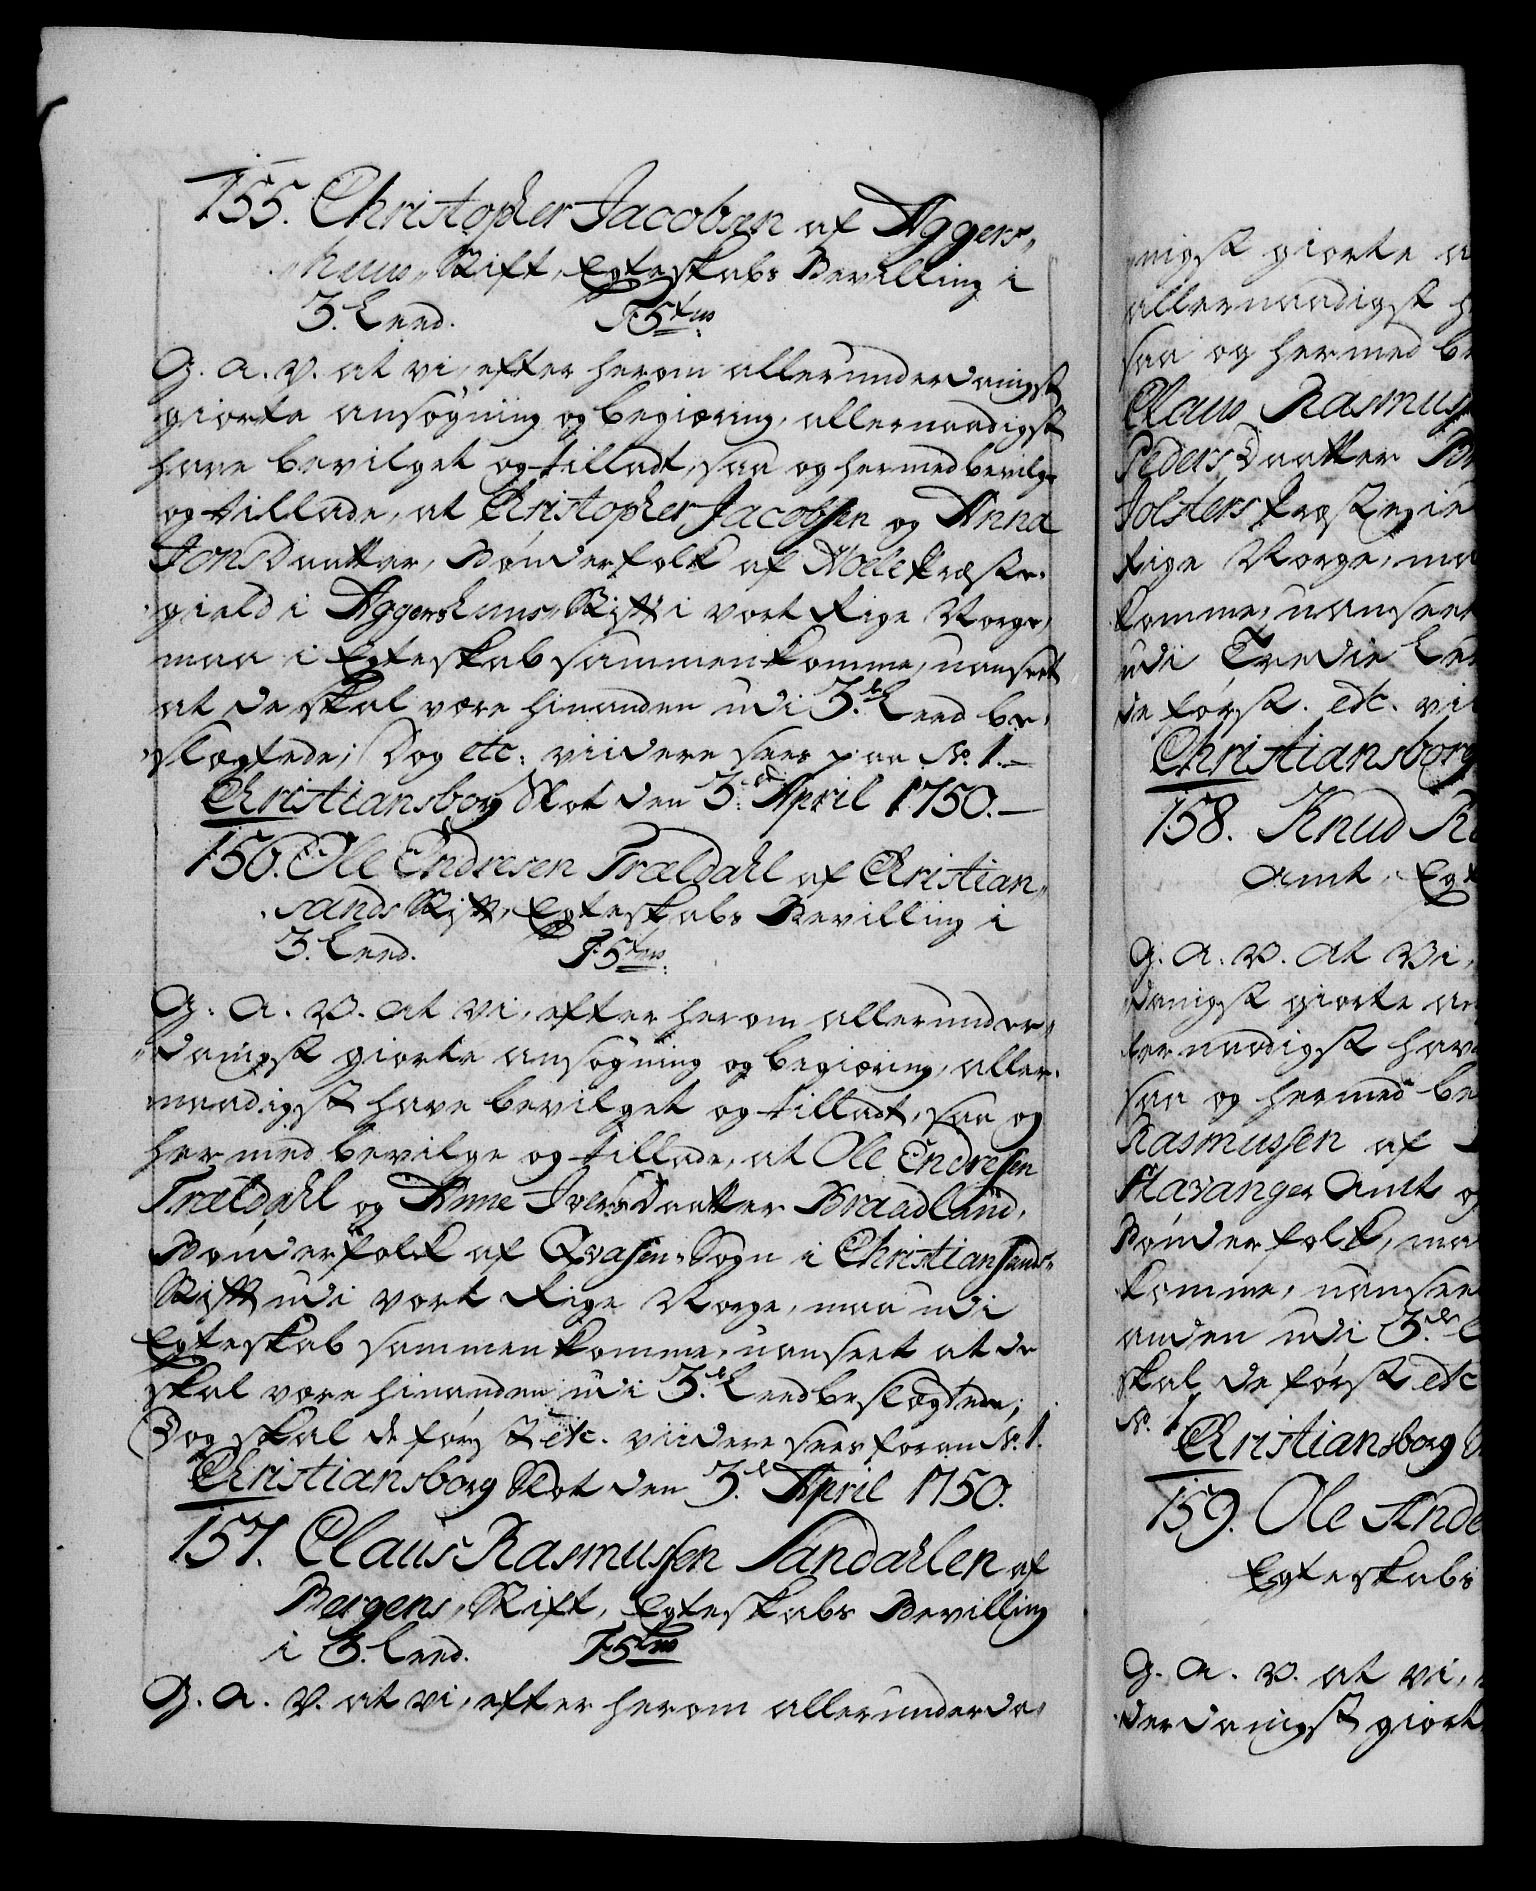 155. Christopher Jacobsen af Aggers„
„huus„ Stift, Egteskabs Bevilling i
3. Leed.
G. A. V. at vi, efter herom allerunderdanigst
giorte ansøgning og begiæring, allernaadigst
have bevilget og tilladt, saa og hermed bevilge
og tillade, at Christopher Jacobsen og Anna
Jons Daatter, Bønderfolk af Præste„
„gield i Aggershuus„ Stift i vort Rige Norge,
maa i Egteskab sammenkomme, uanseet
at de skal være hinanden udi 3.de Leed be„
„slægtede; Dog etc: viidere sees paa No. 1.
Christiansborg Slot den 3.de April 1750.
156. Ole Endresen Trældahl af Christian„
„sands Stift, Egteskabs Bevilling i
3. Leed.
G. A. V. at vi, efter herom allerunder„
„danigst giorte ansøgning og begiæring, aller„
naadigst have bevilget og tilladt, saa og
hermed bevilge og tillade, at Ole Endresen
Trældahl og Anne Ivers Daatter Braadland,
Bønderfolk af Qvasen„ Sogn i Christiansands„
Stift udi vort Rige Norge, maa udi
Egteskab sammenkomme, uanseet at de
skal være hinanden udi 3.de Leed beslægtede;
Dog skal de først etc. viidere sees foran No. 1.
Christiansborg Slot den 3.de April 1750.
157. Claus Rasmussen Sandahlen af
Bergens„ Stift, Egteskabs Bevilling
i 3. Leed.
G. A. V. at vi, efter herom allerunderda„
„nigst giorte a
allernaadigst h
saa og hermed be
Claus Rasmuss
Peders Daatter
Jolsters Præstegie
Rige Norge, ma
komme, uanseet
udi Tredie Lee
de først. etc. vi
Christiansborg
158. Knud Ra
Amt, Egt
G. A. V. at Vi,
danigst giorte an
lernaadigst hav
saa og hermed be
Rasmussen af
Stavanger Amt og
Bønderfolk, ma
komme, uansee
anden udi 3.de L
skal de først etc
No. 1
Christiansborg
159. Ole Ande
Egteskabs
G. A. V. at vi,
derdanigst giort